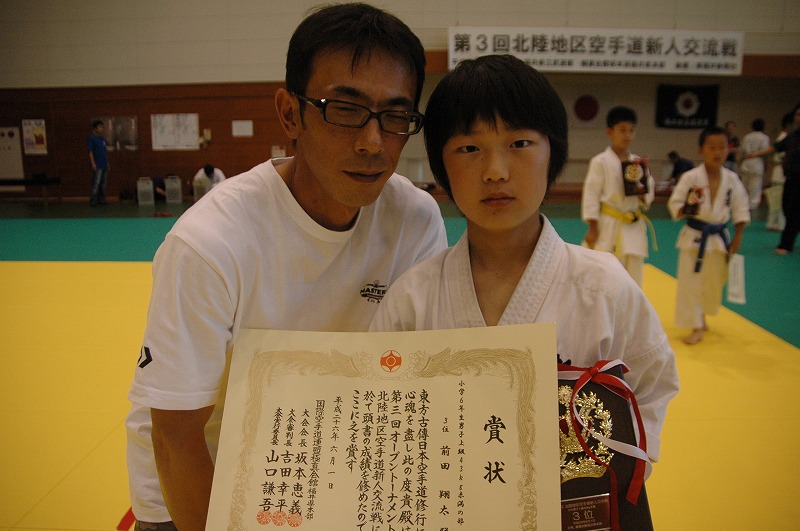 第3回北陸地区空手道新人交流戦
MASTER
賞状
小学6年生男子上級43kg未満の部
3位 前田 翔太
東方古傳日本空手道修行に
心魂を盡し此の度貴殿は
第三回オープントーナメント
北陸地区空手道新人交流戦に
於て頭書の成績を修めたので
ここに之を賞す
平成二十六年六月一日
国際空手道連盟極真会館 福井県本部
大会会長 坂本恵義
大会審判長 吉田幸平
大会実行委員長 山口謙吾
3位